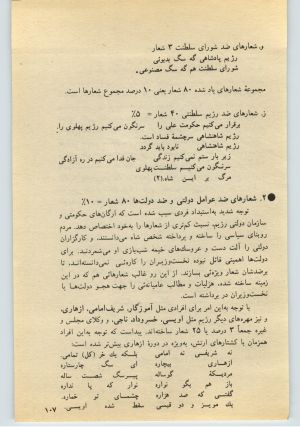 و. شعارهای ضد شورای سلطنت ۳ شعار
رژیم پادشاهی گه سگ بدبونی
شورای سلطنت هم گه سگ مصنوعی.
مجموعهٔ شعارهای یاد شده ۸۰ شعار یعنی ۱۰ درصد مجموع شعارها است.
ز. شعارهای ضد رژیم سلطنتی ۴۰ شعار = ۵٪
برقرار می‌کنیم حکومت علی را سرنگون می‌کنیم رژیم پهلوی را
رژیم شاهنشاهی سرچشمهٔ فساد است.
رژیم شاهنشاهی نابود باید گردد
زیر بار ستم نمی‌کنیم زندگی جان فدا می‌کنیم در ره آزادگی
سرنگون می‌کنیم سلطنت پهلوی
مرگ بر این شاه.(۲)
۲. شعارهای ضد عوامل دولتی و ضد دولت‌ها ۸۰ شعار = ۱۰٪
توجه شدید به استبداد فردی سبب شده است که ارگان‌های حکومتی و
سازمان دولتی رژیم، نسبت کم‌تری از شعارها را به‌خود اختصاص دهد. مردم
روبنای سیاسی را ساخته و پرداخته شخص شاه می‌دانستند، و کارگزاران
دولتی را آلت دست و عروسک‌های خیمه شب‌بازی او می‌شمردند. برای
دولت‌ها اهمیتی قائل نبوده نخست‌وزیران را کاره‌ئی نمی‌دانسته‌اند، تا
برضدشان شعار ویژه‌ئی بسازند. از این رو غالب شعارهائی هم که در این
زمینه ساخته شده، هزلیات و مطالب عامیانه‌ئی را جهت هجو دولت‌ها یا
نخست‌وزیران در برداشته است.
با توجه به‌این امر برای افرادی مثل آموزگار، شریف‌امامی، ازهاری،
و نیز مهره‌های دیگر رژیم مثل اویسی، خسروداد، ناجی، و وکلای مجلس و
غیره جمعاً ۳ درصد یا ۲۵ شعار ساخته‌اند. پیداست که توجه به‌این افراد هم
همزمان با کشتارهای ارتش، به‌ویژه در دورهٔ ازهاری بیش‌تر شده است:
نه شریفی نه امامی بلکه یك خر (کل) تمامی.
ازهاری بیچاره ای سگ چارستاره
مردیکهٔ گوساله پیرسگ شصت ساله
باز هم بگو نواره نوار که پا نداره
گفتی که صد هزاره چشمای تو خماره.
یك مویز و دو قیسی سقط شده اویسی.
۱۰۷